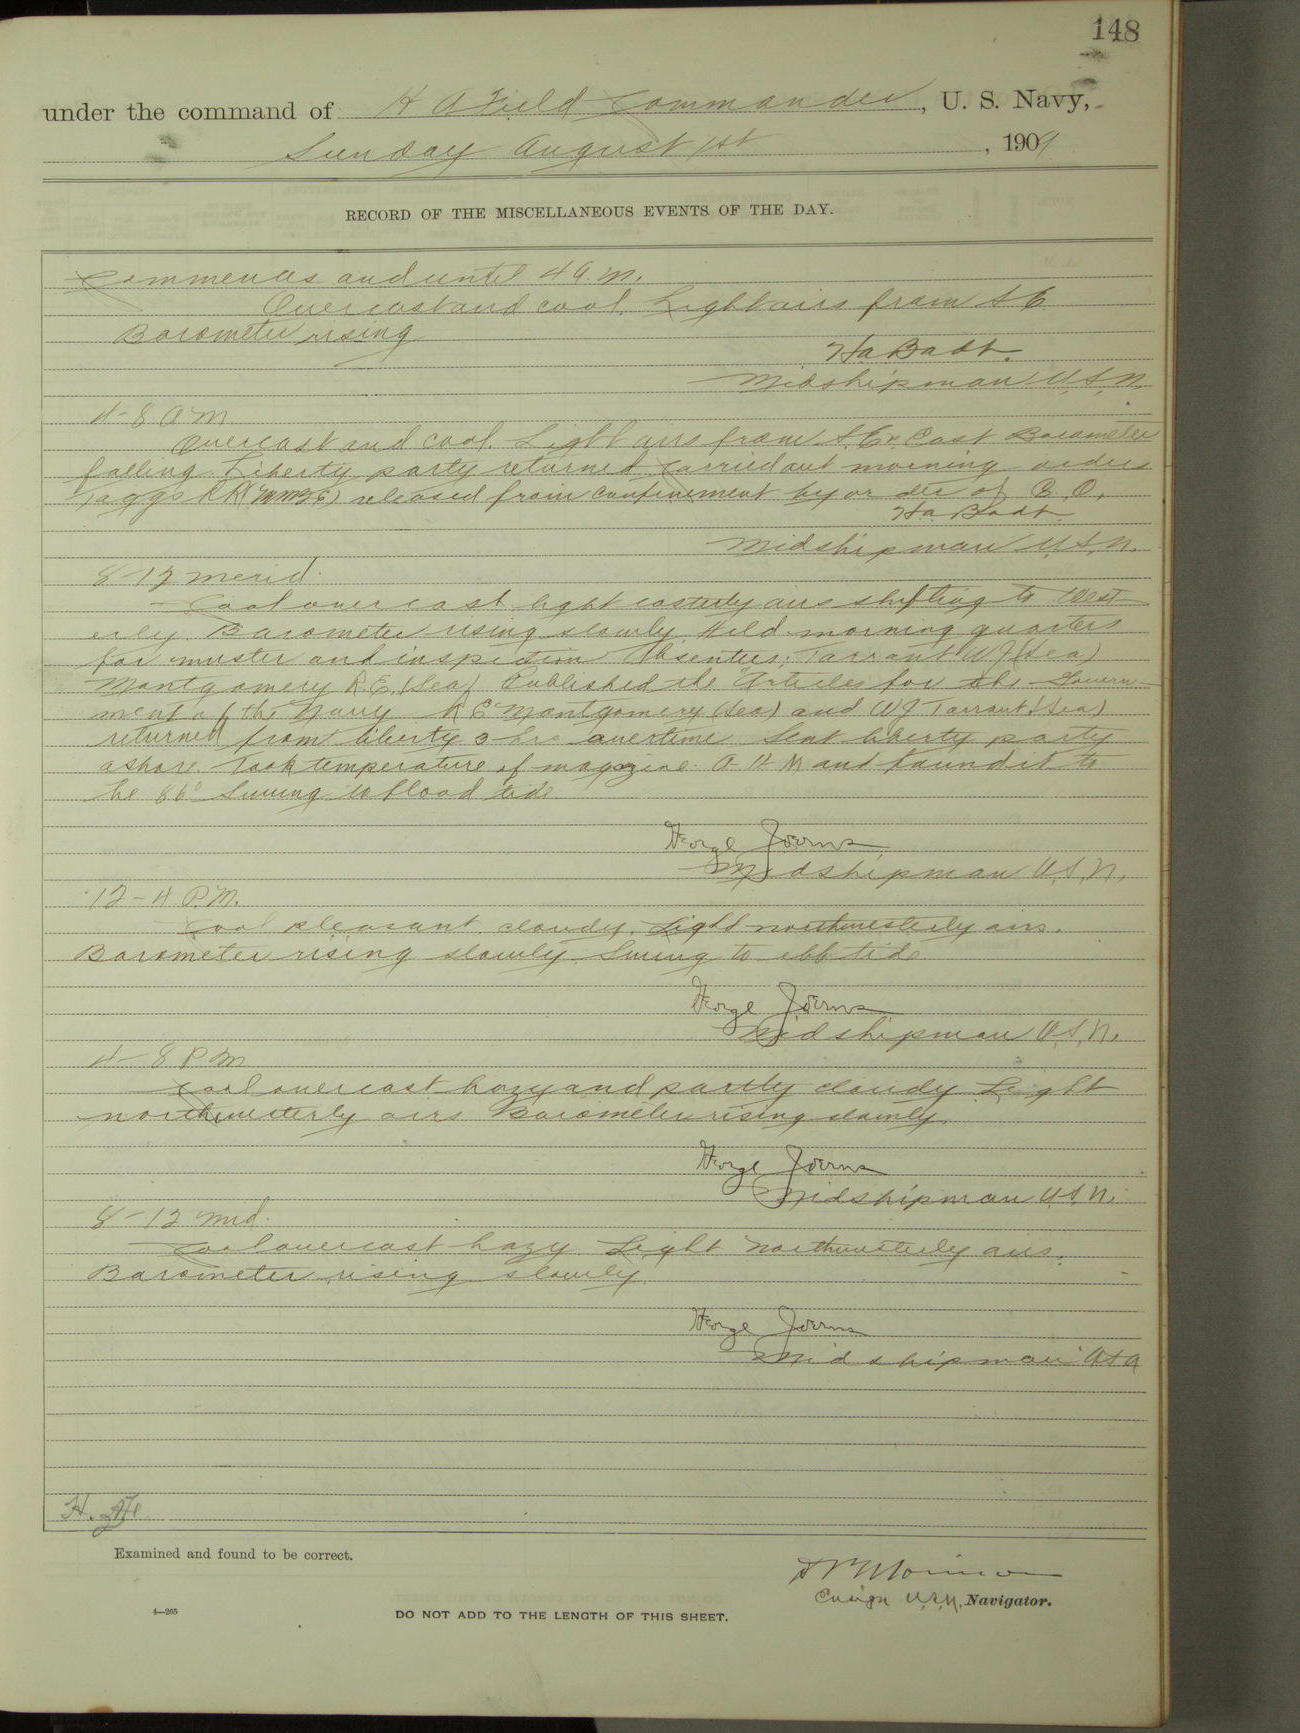 148
under the command of H A Field Commander, U. S. Navy,
Sunday August 1st, 1909
RECORD OF THE MISCELLANEOUS EVENTS OF THE DAY.
Commences and until 4 A.M.
Overcast and cool. Light airs from S E
Barometer rising
H a Badt.
Midshipman U.S.N.
4-8 A M
Overcast and cool. Light airs from S.E. East Barometer
falling. Liberty party returned carried out morning orders
Taggs R R released from confinement by order of C. O.
H a Badt
Midshipman U.S.N.
8-12 merid.
Cool overcast light easterly airs shifting to West
erly. Barometer rising slowly. Held morning quarters
for muster and inspection Absentees; Tarrant W J (Sea)
Montgomery R.E. (Sea) Published the "Articles for the Govern-
ment of the Navy R E Montgomery (Sea) and W J Tarrant (Sea)
returned from liberty 3 hrs overtime Sent liberty party
ashore. Took temperature of magazine and found it to
be 86° Swung to flood tide
George Joerns
Midshipman U.S.N.
12-4 P.M.
Cool pleasant cloudy. Light northwesterly airs.
Barometer rising slowly. Swung to ebb tide.
George Joerns
Midshipman U.S.N.
4-8 P M
Cool overcast hazy and partly cloudy Light
northwesterly airs Barometer rising slowly.
George Joerns
Midshipman U.S.N.
8-12 mid.
Cool overcast hazy Light northwesterly airs.
Barometer rising slowly.
George Joerns
Midshipman U S N
Examined and found to be correct.
Ensign U.S.N., Navigator.
4—265
DO NOT ADD TO THE LENGTH OF THIS SHEET.